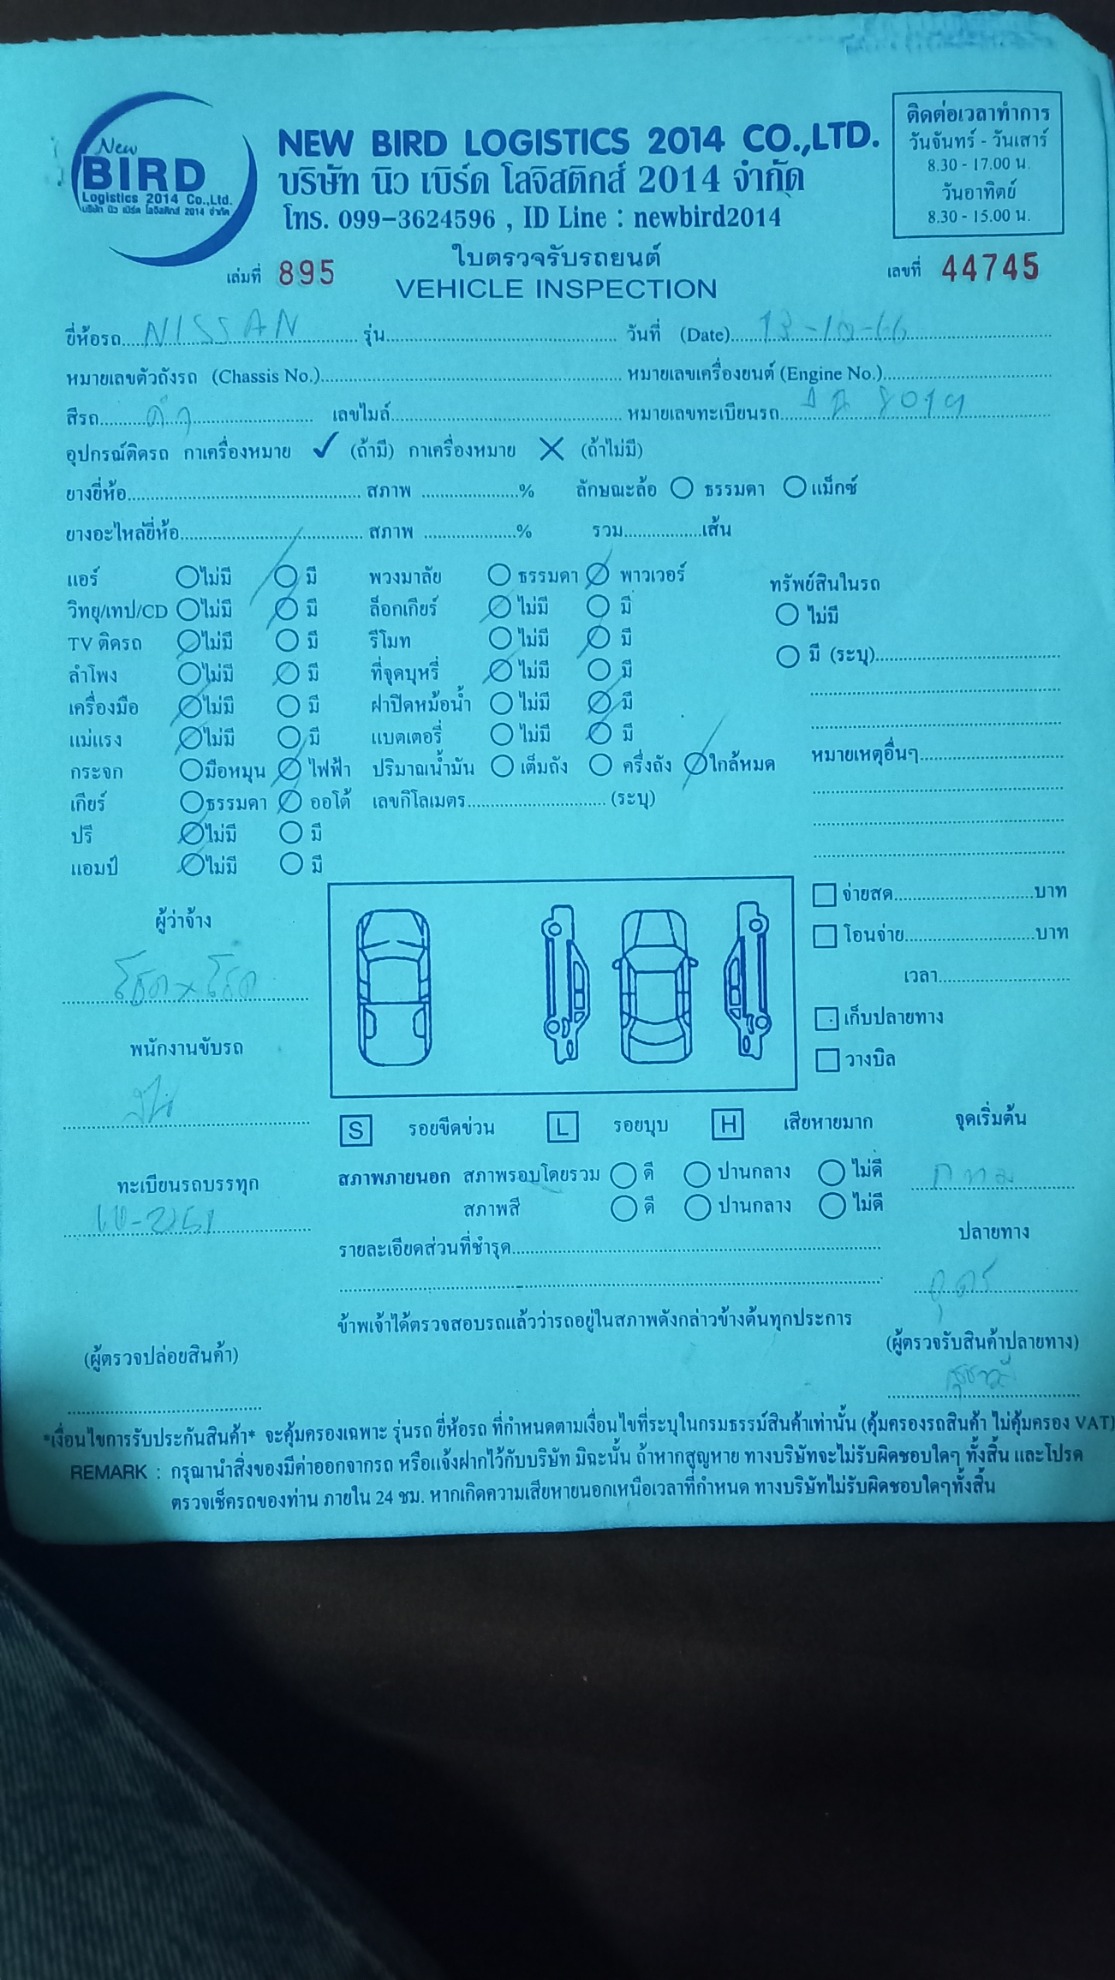 New
BIRD
Logistics 2014 Co.,Ltd.
บริษัท นิว เบิร์ด โลจิสติกส์ 2014 จำกัด
NEW BIRD LOGISTICS 2014 CO.,LTD.
บริษัท นิว เบิร์ด โลจิสติกส์ 2014 จำกัด
โทร. 099-3624596 , ID Line : newbird2014
ติดต่อเวลาทำการ
วันจันทร์ - วันเสาร์
8.30 - 17.00 น.
วันอาทิตย์
8.30 - 15.00 น.
ใบตรวจรับรถยนต์
เล่มที่ 895 VEHICLE INSPECTION เลขที่ 44745
ยี่ห้อรถ NISSAN รุ่น วันที่ (Date) 13-10-66
หมายเลขตัวถังรถ (Chassis No.) หมายเลขเครื่องยนต์ (Engine No.)
สีรถ ดำ เลขไมล์ หมายเลขทะเบียนรถ
อุปกรณ์ติดรถ กาเครื่องหมาย ✓ (ถ้ามี) กาเครื่องหมาย ✕ (ถ้าไม่มี)
ยางยี่ห้อ สภาพ % ลักษณะล้อ ธรรมดา แม็กซ์
ยางอะไหล่ยี่ห้อ สภาพ % รวม เส้น
แอร์ ไม่มี มี พวงมาลัย ธรรมดา พาวเวอร์ ทรัพย์สินในรถ
วิทยุ/เทป/CD ไม่มี มี ล็อกเกียร์ ไม่มี มี ไม่มี
TV ติดรถ ไม่มี มี รีโมท ไม่มี มี มี (ระบุ)
ลำโพง ไม่มี มี ที่จุดบุหรี่ ไม่มี มี
เครื่องมือ ไม่มี มี ฝาปิดหม้อน้ำ ไม่มี มี
แม่แรง ไม่มี มี แบตเตอรี่ ไม่มี มี หมายเหตุอื่นๆ
กระจก มือหมุน ไฟฟ้า ปริมาณน้ำมัน เต็มถัง ครึ่งถัง ใกล้หมด
เกียร์ ธรรมดา ออโต้ เลขกิโลเมตร (ระบุ)
ปรี ไม่มี มี
แอมป์ ไม่มี มี
ผู้ว่าจ้าง
พนักงานขับรถ
ทะเบียนรถบรรทุก
(ผู้ตรวจปล่อยสินค้า)
จ่ายสด บาท
โอนจ่าย บาท
เวลา
เก็บปลายทาง
วางบิล
S รอยขีดข่วน L รอยบุบ H เสียหายมาก
สภาพภายนอก สภาพรอบโดยรวม ดี ปานกลาง ไม่ดี
สภาพสี ดี ปานกลาง ไม่ดี
รายละเอียดส่วนที่ชำรุด
ข้าพเจ้าได้ตรวจสอบรถแล้วว่ารถอยู่ในสภาพดังกล่าวข้างต้นทุกประการ
จุดเริ่มต้น
กทม
ปลายทาง
อุดร
(ผู้ตรวจรับสินค้าปลายทาง)
*เงื่อนไขการรับประกันสินค้า* จะคุ้มครองเฉพาะ รุ่นรถ ยี่ห้อรถ ที่กำหนดตามเงื่อนไขที่ระบุในกรมธรรม์สินค้าเท่านั้น (คุ้มครองรถสินค้า ไม่คุ้มครอง VAT)
REMARK : กรุณานำสิ่งของมีค่าออกจากรถ หรือแจ้งฝากไว้กับบริษัท มิฉะนั้น ถ้าหากสูญหาย ทางบริษัทจะไม่รับผิดชอบใดๆ ทั้งสิ้น และโปรด
ตรวจเช็ครถของท่าน ภายใน 24 ชม. หากเกิดความเสียหายนอกเหนือเวลาที่กำหนด ทางบริษัทไม่รับผิดชอบใดๆทั้งสิ้น